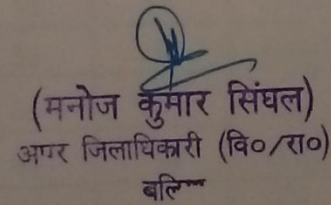 (मनोज कुमार सिंघल)
अपर जिलाधिकारी (वि०/रा०)